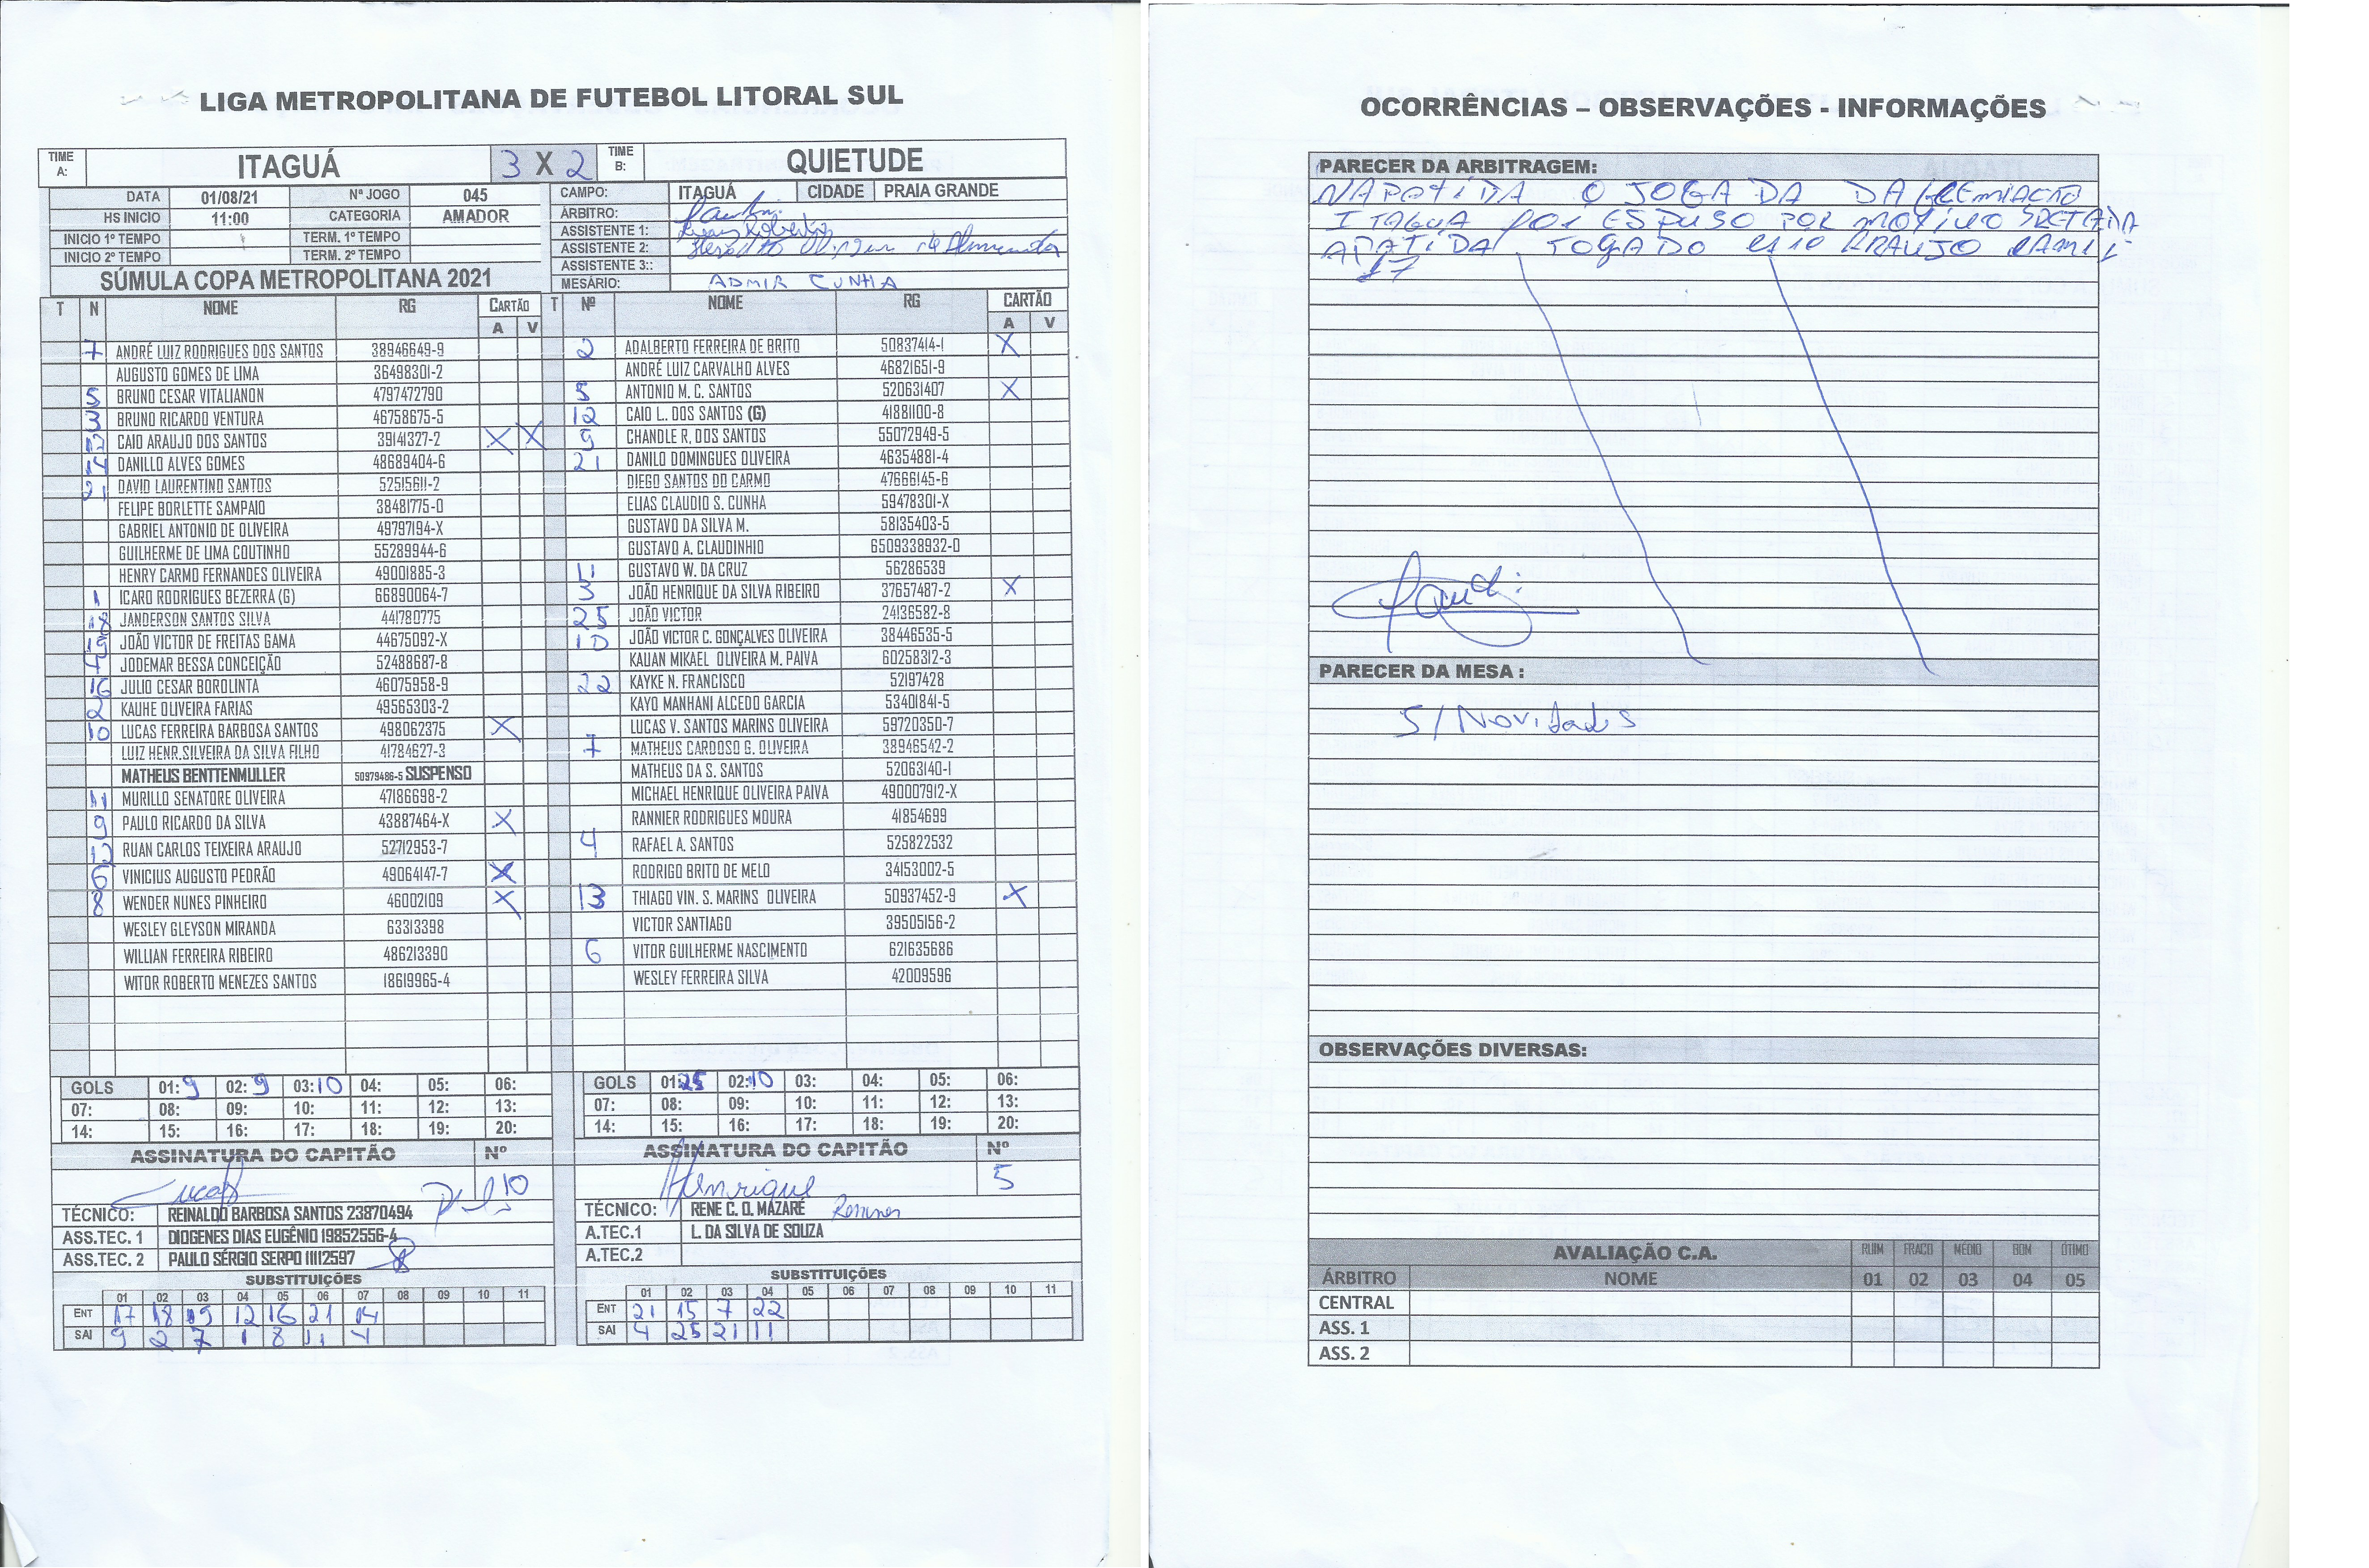 LIGA METROPOLITANA DE FUTEBOL LITORAL SUL
TIME A: ITAGUÁ 3 X 2 TIME B: QUIETUDE
DATA 01/08/21 Nº JOGO 045 CAMPO: ITAGUÁ CIDADE PRAIA GRANDE
HS INICIO 11:00 CATEGORIA AMADOR ÁRBITRO:
INICIO 1º TEMPO TERM. 1º TEMPO ASSISTENTE 1:
INICIO 2º TEMPO TERM. 2º TEMPO ASSISTENTE 2:
ASSISTENTE 3::
SÚMULA COPA METROPOLITANA 2021 MESÁRIO: ADMIR CUNHA
T N NOME RG CARTÃO T Nº NOME RG CARTÃO
A V A V
7 ANDRÉ LUIZ RODRIGUES DOS SANTOS 38946649-9 2 ADALBERTO FERREIRA DE BRITO 50837414-1 X
AUGUSTO GOMES DE LIMA 36498301-2 ANDRÉ LUIZ CARVALHO ALVES 46821651-9
5 BRUNO CESAR VITALIANON 4797472790 5 ANTONIO M. C. SANTOS 520631407 X
3 BRUNO RICARDO VENTURA 46758675-5 12 CAIO L. DOS SANTOS (G) 41881100-8
CAIO ARAUJO DOS SANTOS 39141327-2 X X 9 CHANDLE R, DOS SANTOS 55072949-5
14 DANILLO ALVES GOMES 48689404-6 21 DANILO DOMINGUES OLIVEIRA 46354881-4
21 DAVID LAURENTINO SANTOS 52515611-2 DIEGO SANTOS DO CARMO 47666145-6
FELIPE BORLETTE SAMPAIO 38481775-0 ELIAS CLAUDIO S. CUNHA 59478301-X
GABRIEL ANTONIO DE OLIVEIRA 49797194-X GUSTAVO DA SILVA M. 58135403-5
GUILHERME DE LIMA COUTINHO 55289944-6 GUSTAVO A. CLAUDINHIO 6509338932-0
HENRY CARMO FERNANDES OLIVEIRA 49001885-3 11 GUSTAVO W. DA CRUZ 56286539
1 ICARO RODRIGUES BEZERRA (G) 66890064-7 3 JOÃO HENRIQUE DA SILVA RIBEIRO 37657487-2 X
18 JANDERSON SANTOS SILVA 441780775 25 JOÃO VICTOR 24136582-8
19 JOÃO VICTOR DE FREITAS GAMA 44675092-X 10 JOÃO VICTOR C. GONÇALVES OLIVEIRA 38446535-5
4 JODEMAR BESSA CONCEIÇÃO 52488687-8 KAUAN MIKAEL OLIVEIRA M. PAIVA 60258312-3
16 JULIO CESAR BOROLINTA 46075958-9 22 KAYKE N. FRANCISCO 52197428
2 KAUHE OLIVEIRA FARIAS 49565303-2 KAYO MANHANI ALCEDO GARCIA 53401841-5
10 LUCAS FERREIRA BARBOSA SANTOS 498062375 X LUCAS V. SANTOS MARINS OLIVEIRA 59720350-7
LUIZ HENR.SILVEIRA DA SILVA FILHO 41784627-3 7 MATHEUS CARDOSO G. OLIVEIRA 38946542-2
MATHEUS BENTTENMULLER 50979486-5 SUSPENSO MATHEUS DA S. SANTOS 52063140-1
11 MURILLO SENATORE OLIVEIRA 47186698-2 MICHAEL HENRIQUE OLIVEIRA PAIVA 490007912-X
9 PAULO RICARDO DA SILVA 43887464-X X RANNIER RODRIGUES MOURA 41854699
RUAN CARLOS TEIXEIRA ARAUJO 52712953-7 4 RAFAEL A. SANTOS 525822532
6 VINICIUS AUGUSTO PEDRÃO 49064147-7 X RODRIGO BRITO DE MELO 34153002-5
8 WENDER NUNES PINHEIRO 46002109 X 13 THIAGO VIN. S. MARINS OLIVEIRA 50937452-9 X
WESLEY GLEYSON MIRANDA 63313398 VICTOR SANTIAGO 39505156-2
WILLIAN FERREIRA RIBEIRO 486213390 6 VITOR GUILHERME NASCIMENTO 621635686
WITOR ROBERTO MENEZES SANTOS 18619965-4 WESLEY FERREIRA SILVA 42009596
GOLS 01: 9 02: 9 03: 10 04: 05: 06: GOLS 01: 25 02: 10 03: 04: 05: 06:
07: 08: 09: 10: 11: 12: 13: 07: 08: 09: 10: 11: 12: 13:
14: 15: 16: 17: 18: 19: 20: 14: 15: 16: 17: 18: 19: 20:
ASSINATURA DO CAPITÃO Nº ASSINATURA DO CAPITÃO Nº
Lucas 10 Henrique 5
TÉCNICO: REINALDO BARBOSA SANTOS 23870494 TÉCNICO: RENE C. O. MAZARÉ
ASS.TEC. 1 DIOGENES DIAS EUGÊNIO 19852556-4 A.TEC.1 L. DA SILVA DE SOUZA
ASS.TEC. 2 PAULO SÉRGIO SERPO 11112597 A.TEC.2
SUBSTITUIÇÕES SUBSTITUIÇÕES
01 02 03 04 05 06 07 08 09 10 11 01 02 03 04 05 06 07 08 09 10 11
ENT 17 18 19 12 16 21 14 ENT 21 15 7 22
SAI 9 2 7 1 8 11 4 SAI 4 25 21 11
OCORRÊNCIAS – OBSERVAÇÕES - INFORMAÇÕES
PARECER DA ARBITRAGEM:
NAPATIDA O JOGA DA DA GREMIACAO
ITAGUA FOI ESPUSO POR MOTIVO
APATIDA JOGADO ARAUJO
17
PARECER DA MESA :
S/Novidades
OBSERVAÇÕES DIVERSAS:
AVALIAÇÃO C.A. RUIM FRACO MÉDIO BOM ÓTIMO
ÁRBITRO NOME 01 02 03 04 05
CENTRAL
ASS. 1
ASS. 2